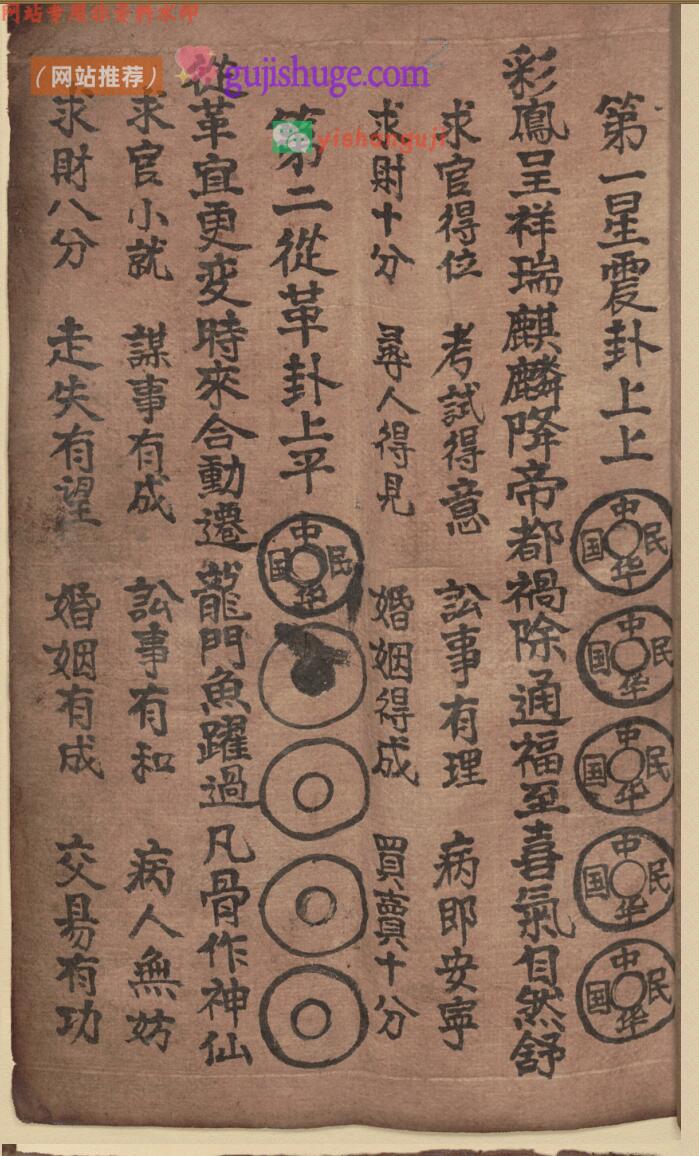 网站专用非资料水印
（网站推荐）
gujishuge.com
yishanguji
第一星震卦上上
中华民国
中华民国
中华民国
中华民国
中华民国
彩鳳呈祥瑞麒麟降帝都禍除通福至喜氣自然舒
求官得位 考試得意 訟事有理 病即安寧
求財十分 尋人得見 婚姻得成 買賣十分
第二從革卦上平
中华民国
從革宜更变時來合動遷龍門魚躍過凡骨作神仙
求官小就 謀事有成 訟事有和 病人無妨
求財八分 走失有望 婚姻有成 交易有功